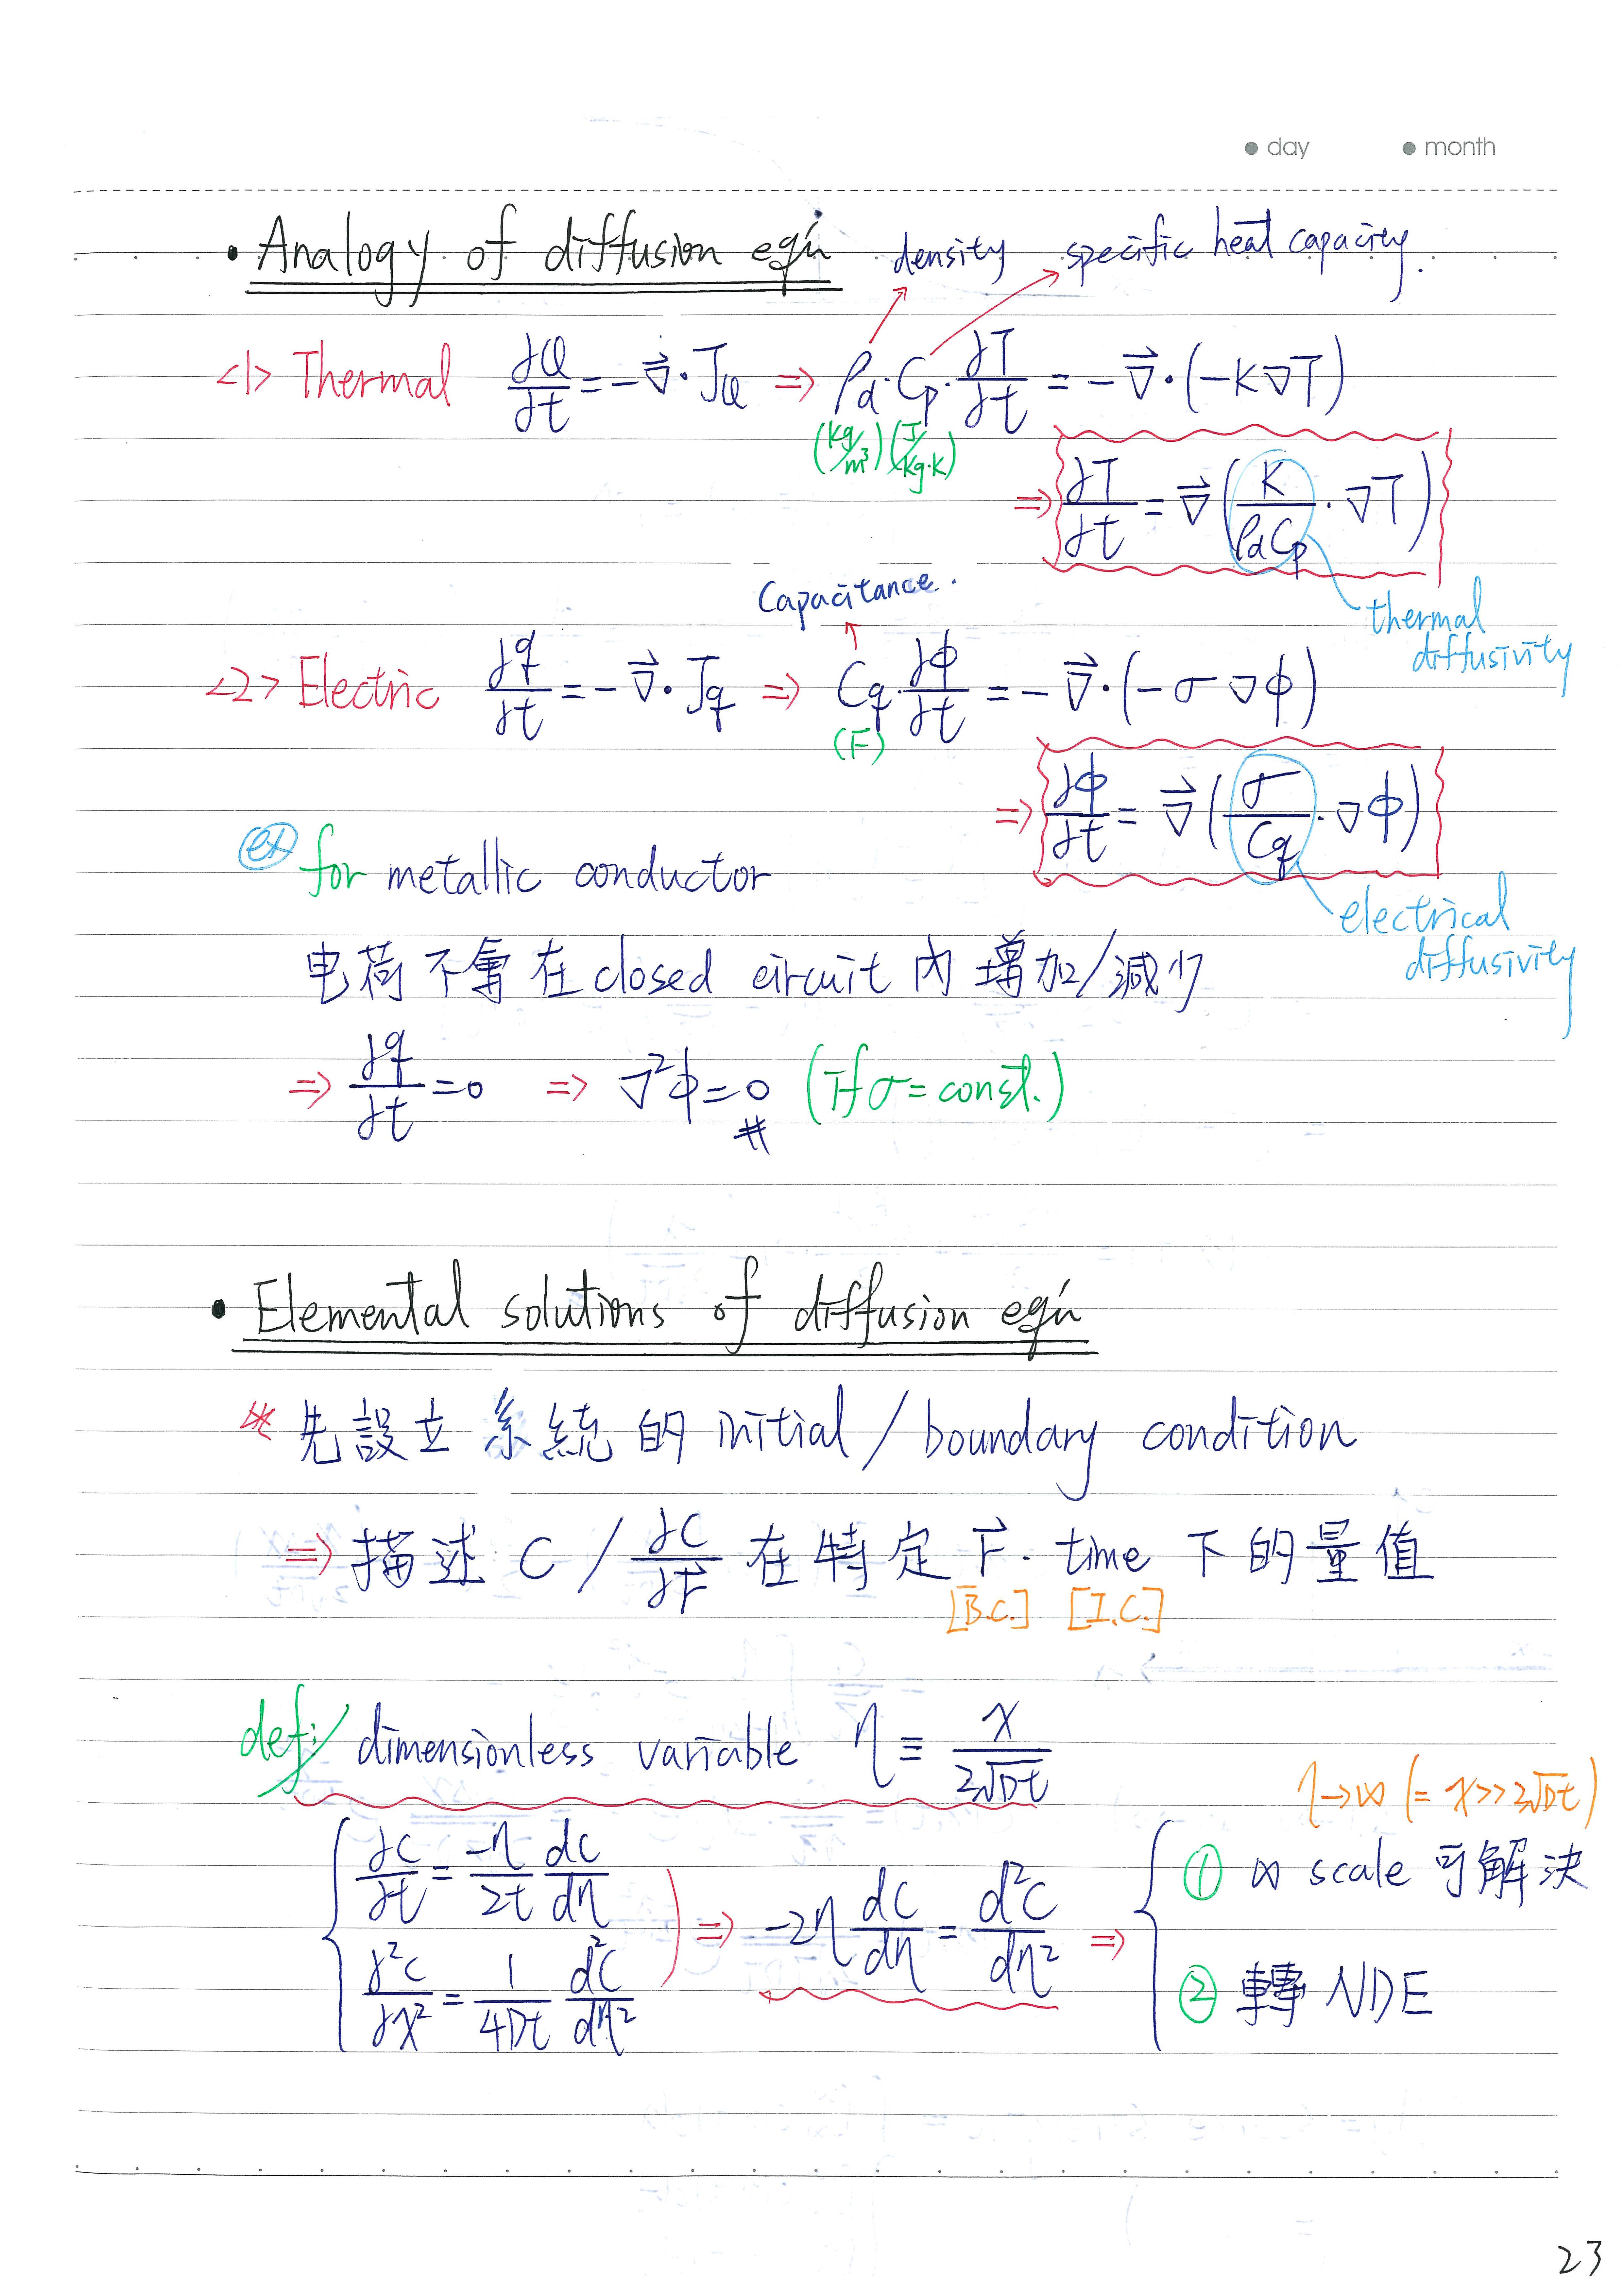 ● day ● month
• Analogy of diffusion eq'n
density specific heat capacity.
<1> Thermal ∂Q/∂t = -∇⃗·J_Q ⇒ ρd·Cp·∂T/∂t = -∇⃗·(-K∇T)
(kg/m³)(J/kg·K)
⇒ ∂T/∂t = ∇⃗(K/ρdCp·∇T)
thermal diffusivity
Capacitance.
<2> Electric ∂q/∂t = -∇⃗·Jq ⇒ Cq·∂ϕ/∂t = -∇⃗·(-σ∇ϕ)
(F)
⇒ ∂ϕ/∂t = ∇⃗(σ/Cq·∇ϕ)
electrical diffusivity
ex for metallic conductor
电荷不會在 closed circuit 內增加/減少
⇒ ∂q/∂t = 0 ⇒ ∇²ϕ = 0 # (if σ = const.)
• Elemental solutions of diffusion eq'n
* 先設立系統的 initial / boundary condition
⇒ 描述 C / ∂C/∂r⃗ 在特定 r⃗. time 下的量值
[B.C.] [I.C.]
def:/ dimensionless variable η ≡ x/2√Dt
η→∞ (= x>>2√Dt)
∂C/∂t = -η/2t dC/dη
∂²C/∂x² = 1/4Dt d²C/dη²
⇒ -2η dC/dη = d²C/dη² ⇒
① ∞ scale 可解決
② 轉 NDE
23